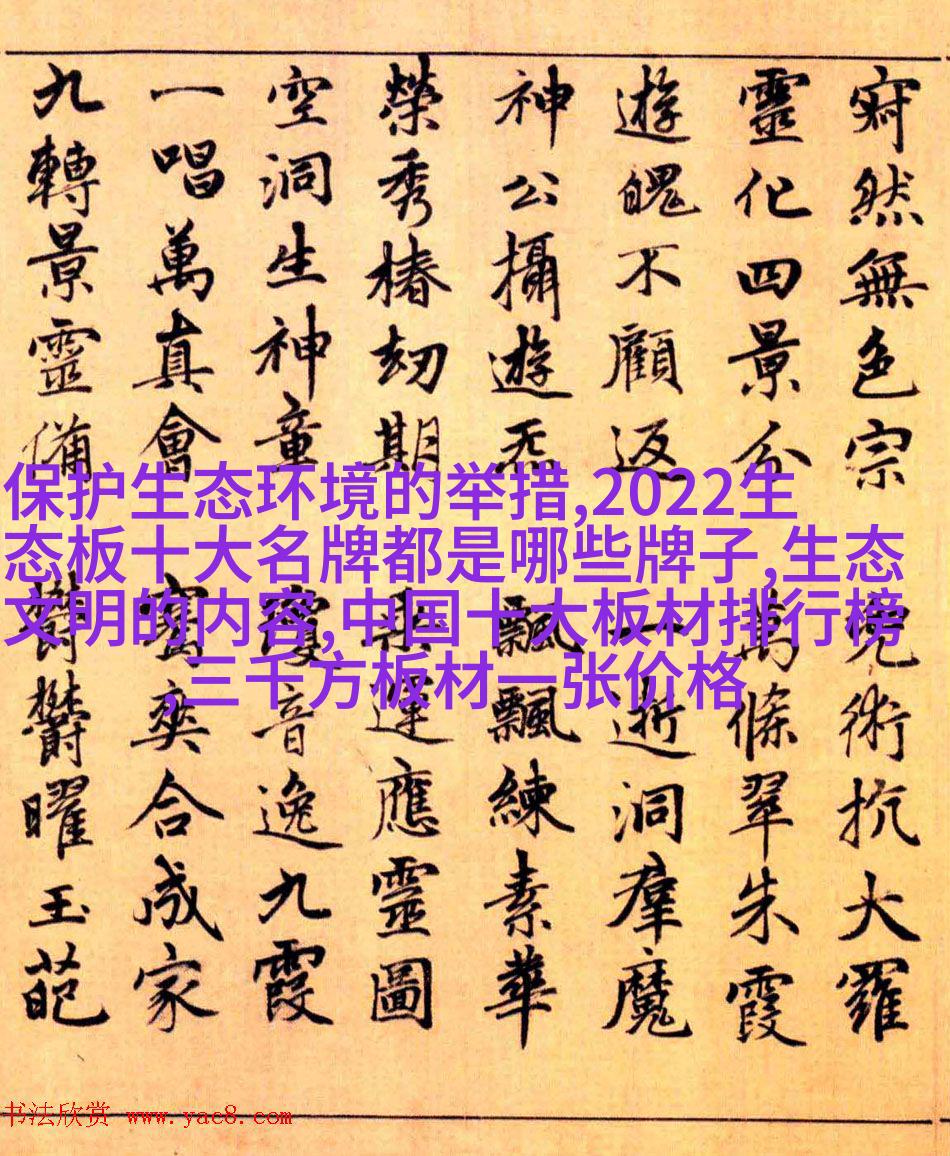 寂然無色宗 兜術抗大羅
靈化四景分 萬條翠朱霞
遊魂不顧返 一逝洞羣魔
神公攝遊炁 飄飄練素華
榮秀椿劫期 應靈圖
空洞生神童 音逸九霞
一唱萬真會 爽合成家
九轉景靈備 欝欝曜玉葩
保护生态环境的举措,2022生
态板十大名牌都是哪些牌子,生态
文明的内容,中国十大板材排行榜
,三千方板材一张价格
书法欣赏 www.yac8.com